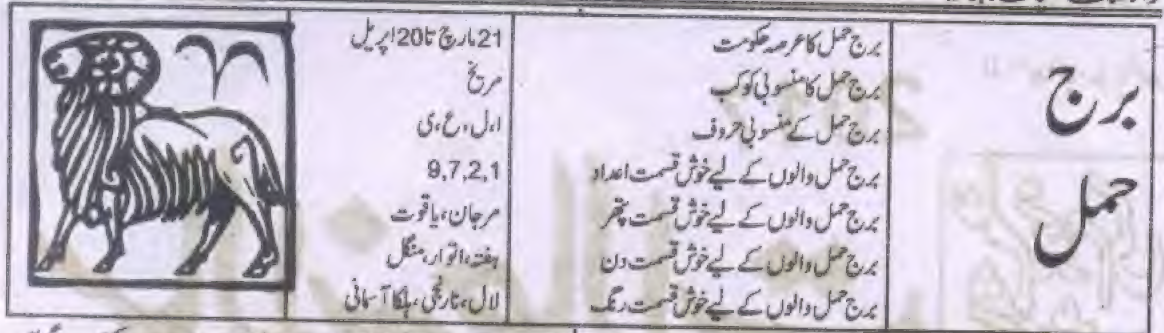 برج
حمل
برج حمل کا عرصہ حکومت 21 مارچ تا 20 اپریل
برج حمل کا منسوبی کوکب مریخ
برج حمل کے منسوبی حروف ا، ل، ع، ی
برج حمل والوں کے لیے خوش قسمت اعداد 9,7,2,1
برج حمل والوں کے لیے خوش قسمت پتھر مرجان، یاقوت
برج حمل والوں کے لیے خوش قسمت دن ہفتہ، اتوار، منگل
برج حمل والوں کے لیے خوش قسمت رنگ لال، نارنجی، ہلکا آسمانی